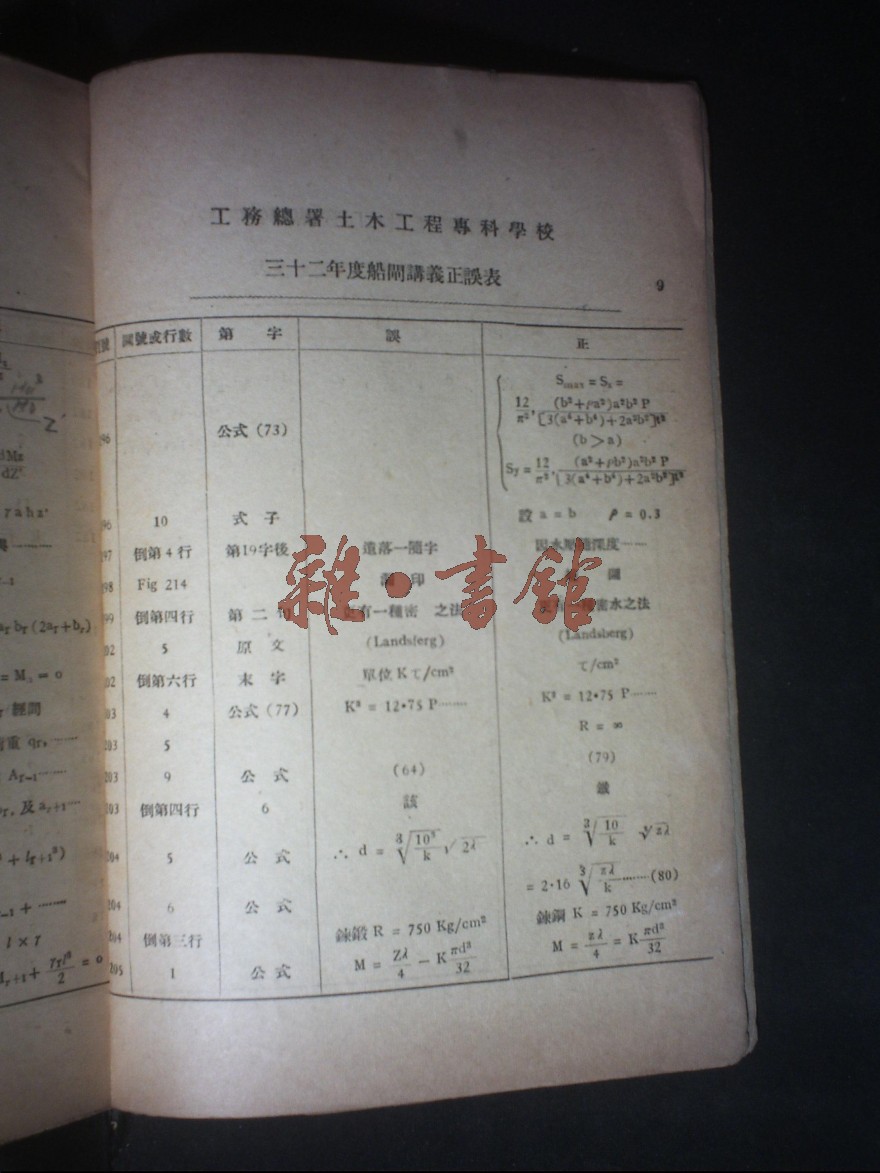 工務總署土木工程專科學校
三十二年度船閘講義正誤表
9
號 圖號或行數 第 字 誤 正
96 公式 (73) Smax = Sx =
12/π² · (b²+ρa²)a²b² P/[3(a⁴+b⁴)+2a²b²]t²
(b > a)
Sy = 12/π² · (a²+ρb²)a²b² P/[3(a⁴+b⁴)+2a²b²]t²
96 10 式 子 設 a = b ρ = 0.3
97 倒第 4 行 第19字後 遺落一隨字 深度
98 Fig 214 印 圖
99 倒第四行 第 二 有一種密 之法 密水之法
02 5 原 文 (Landsferg) (Landsberg)
02 倒第六行 末 字 單位 K τ/cm² τ/cm²
03 4 公式 (77) K³ = 12·75 P…… K³ = 12·75 P……
203 5 R = ∞
203 9 公 式 (64) (79)
203 倒第四行 6 該 鐵
204 5 公 式 ∴ d = ∛(10³/k) √2λ ∴ d = ∛(10/k) ∛zλ
204 6 公 式 = 2·16 ∛(zλ/k)……(80)
204 倒第三行 鍊鍛 R = 750 Kg/cm² 鍊鋼 K = 750 Kg/cm²
205 1 公 式 M = Zλ/4 − K πd³/32 M = zλ/4 = K πd³/32
雜·書館
Mz
dZ
r a h z
a_r b_r (2a_r + b_r)
= M₃ = o
經閘
重 q_r,……
A_r−1……
及 a_r+1…
+ l_r+1³)
r−1 + ……
l × γ
M_r+1 + γ_r l³/2 = o